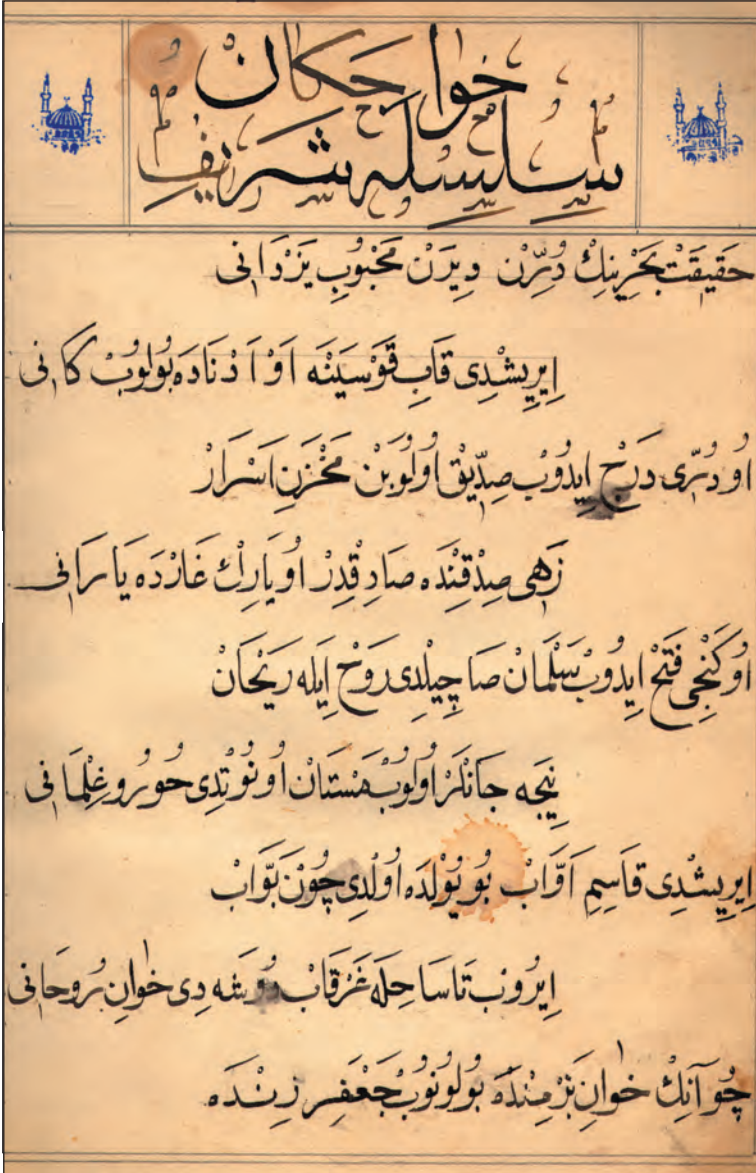 خواجكان
سلسلهٔ شريف
حَقِيقَتْ بَحْرِينِكْ دُرِّنْ وِيرَنْ مَحْبُوبِ يَزْدَانِى
اِيرِيشْدِى قَابِ قَوْسَيْنَه اَوْ اَدْنَادَه بُولُوبْ كَانِى
اُو دُرِّى دَرْجْ اِيدُوبْ صِدِّيقْ اُولُوبَنْ مَخْزَنِ اَسْرَارْ
زَهِى صِدْقِنْدَه صَادِقْدِرْ اُو يَارِكْ غَارْدَه يَارَانِى
اُو كَنْجِى فَتْحْ اِيدُوبْ سَلْمَانْ صَاچِيلْدِى رَوْحْ اِيلَه رَيْحَانْ
نِيجَه جَانْلَرْ اُولُوبْ مَسْتَانْ اُونُوتْدِى حُورُ و غِلْمَانِى
اِيرِيشْدِى قَاسِمِ اَوَّابْ بُو يُولْدَه اُولْدِى چُونْ بَوَّابْ
اِيرُوبْ تَا سَاحِلَه غَرْقَابْ دُوشَه دِى خٰوانِ رُوحَانِى
چُو آنِكْ خٰوانِ بَزْمِنْدَه بُولُونُوبْ جَعْفَرِ زِنْدَه